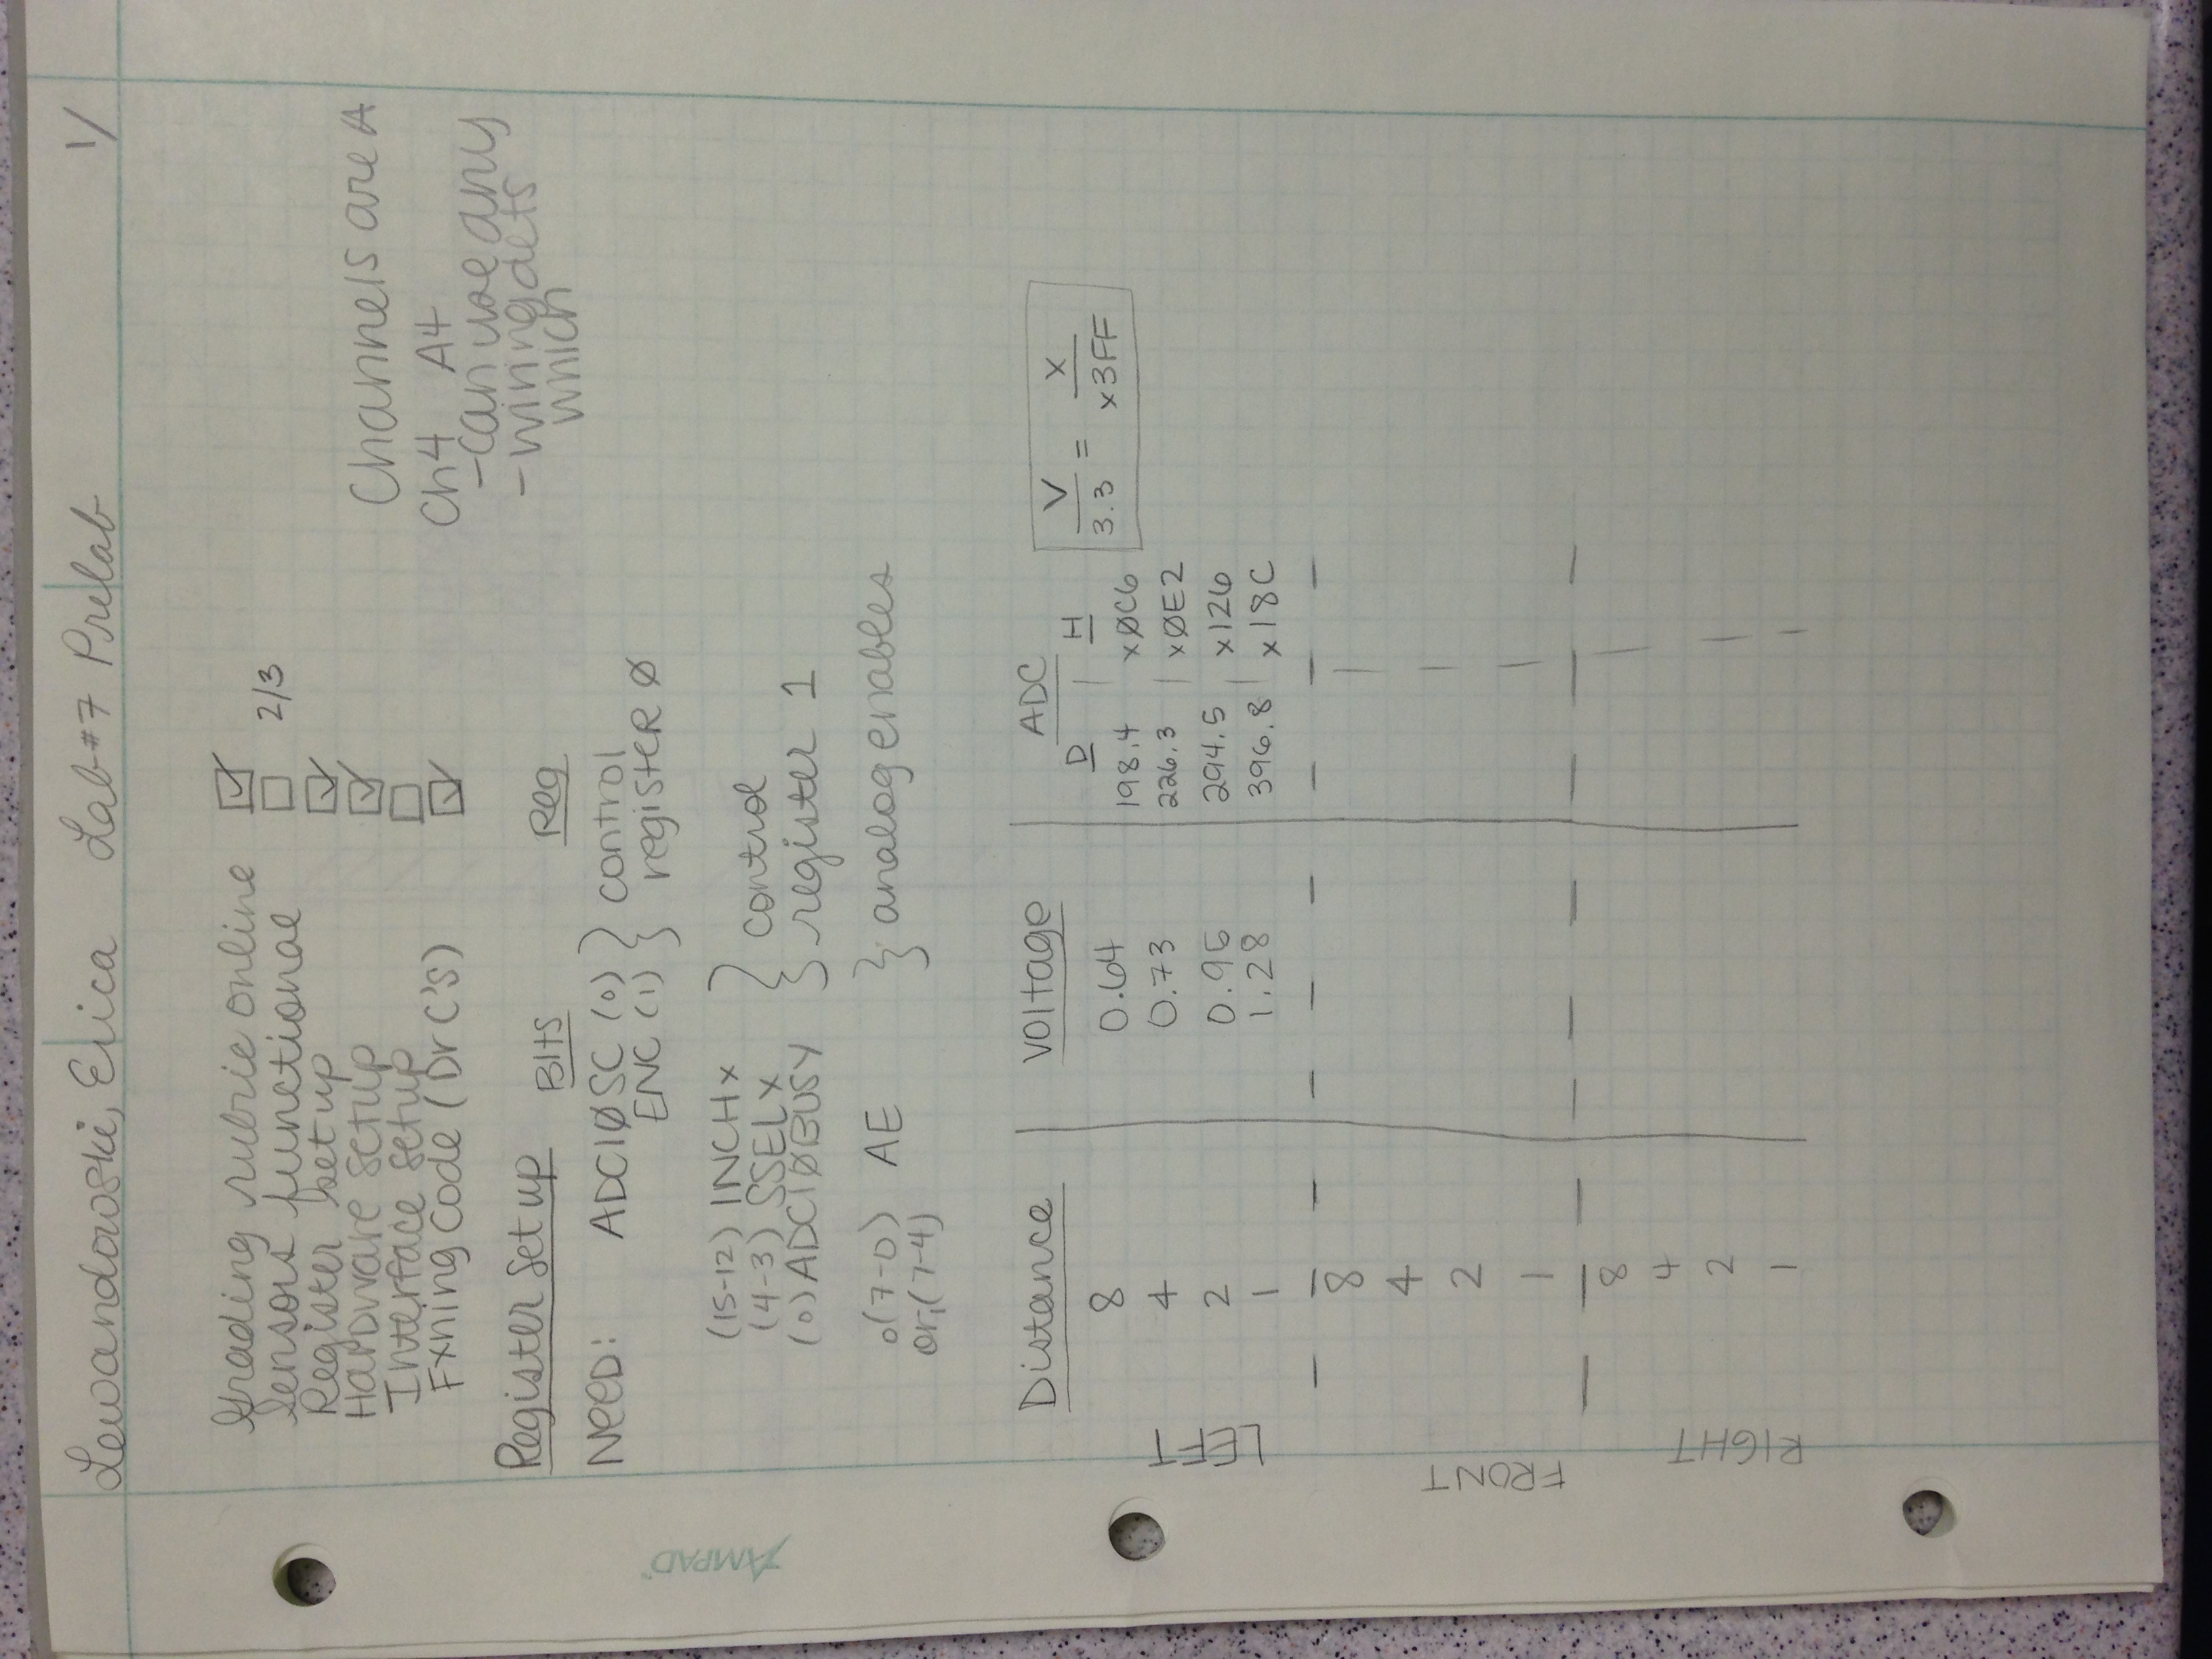 Lewandowski, Erica Lab #7 Prelab 1/
Grading rubric online
Sensors functional 2/3
Register set up
Hardware setup
Interface setup
Fxning Code (Dr C's)
Channels are A
Ch4 A4
-can use any
-wiring dets
which
Register Set up
Bits Reg
NEED: ADC1ØSC (0) } control
ENC (1) } register Ø
(15-12) INCHx
(4-3) SSELx
(0) ADC1ØBUSY
} control
register 1
0(7-0) AE } analog enables
or 1(7-4)
Distance Voltage ADC
D H
V/3.3 = X/x3FF
LEFT
8 0.64 198.4 xØC6
4 0.73 226.3 xØE2
2 0.95 294.5 x126
1 1.28 396.8 x18C
FRONT
8
4
2
1
RIGHT
8
4
2
1
AMPAD